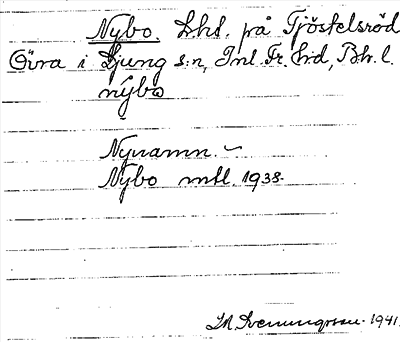 Nybo. Lhl. på Tjöstelsröd
Övra i Ljung s:n, Inl. Fr. hd, Bh. l.
nýbo
Nynamn. –
Nybo mtl. 1938.
Sveningsson. 1941.